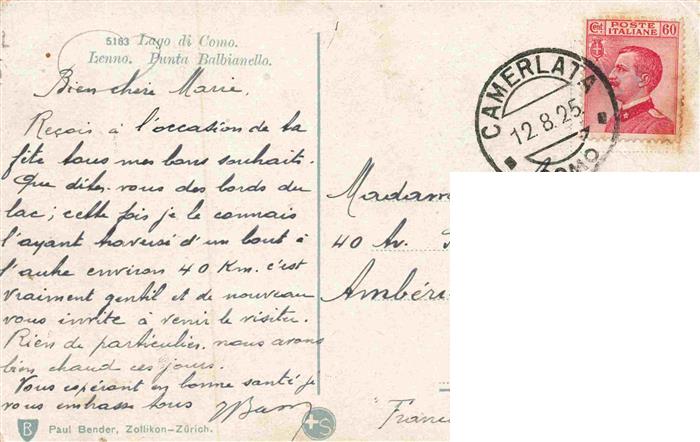 5183 Lago di Como.
Lenno. Punta Balbianello.
Bien chère Marie.
Reçois à l'occasion de ta
fête tous mes bons souhaits.
Que dites-vous des bords du
lac; cette fois je le connais
l'ayant traversé d'un bout à
l'autre environ 40 Km. c'est
vraiment gentil et de nouveau
vous invite à venir le visiter.
Rien de particulier, nous avons
bien chaud ces jours.
Vous espérant en bonne santé je
vous embrasse tous
B Paul Bender, Zollikon-Zürich.
+S
POSTE
ITALIANE
Cent. 60
CAMERLATA
12.8.25
COMO
Madam
40 Av.
Ambéri
Franc